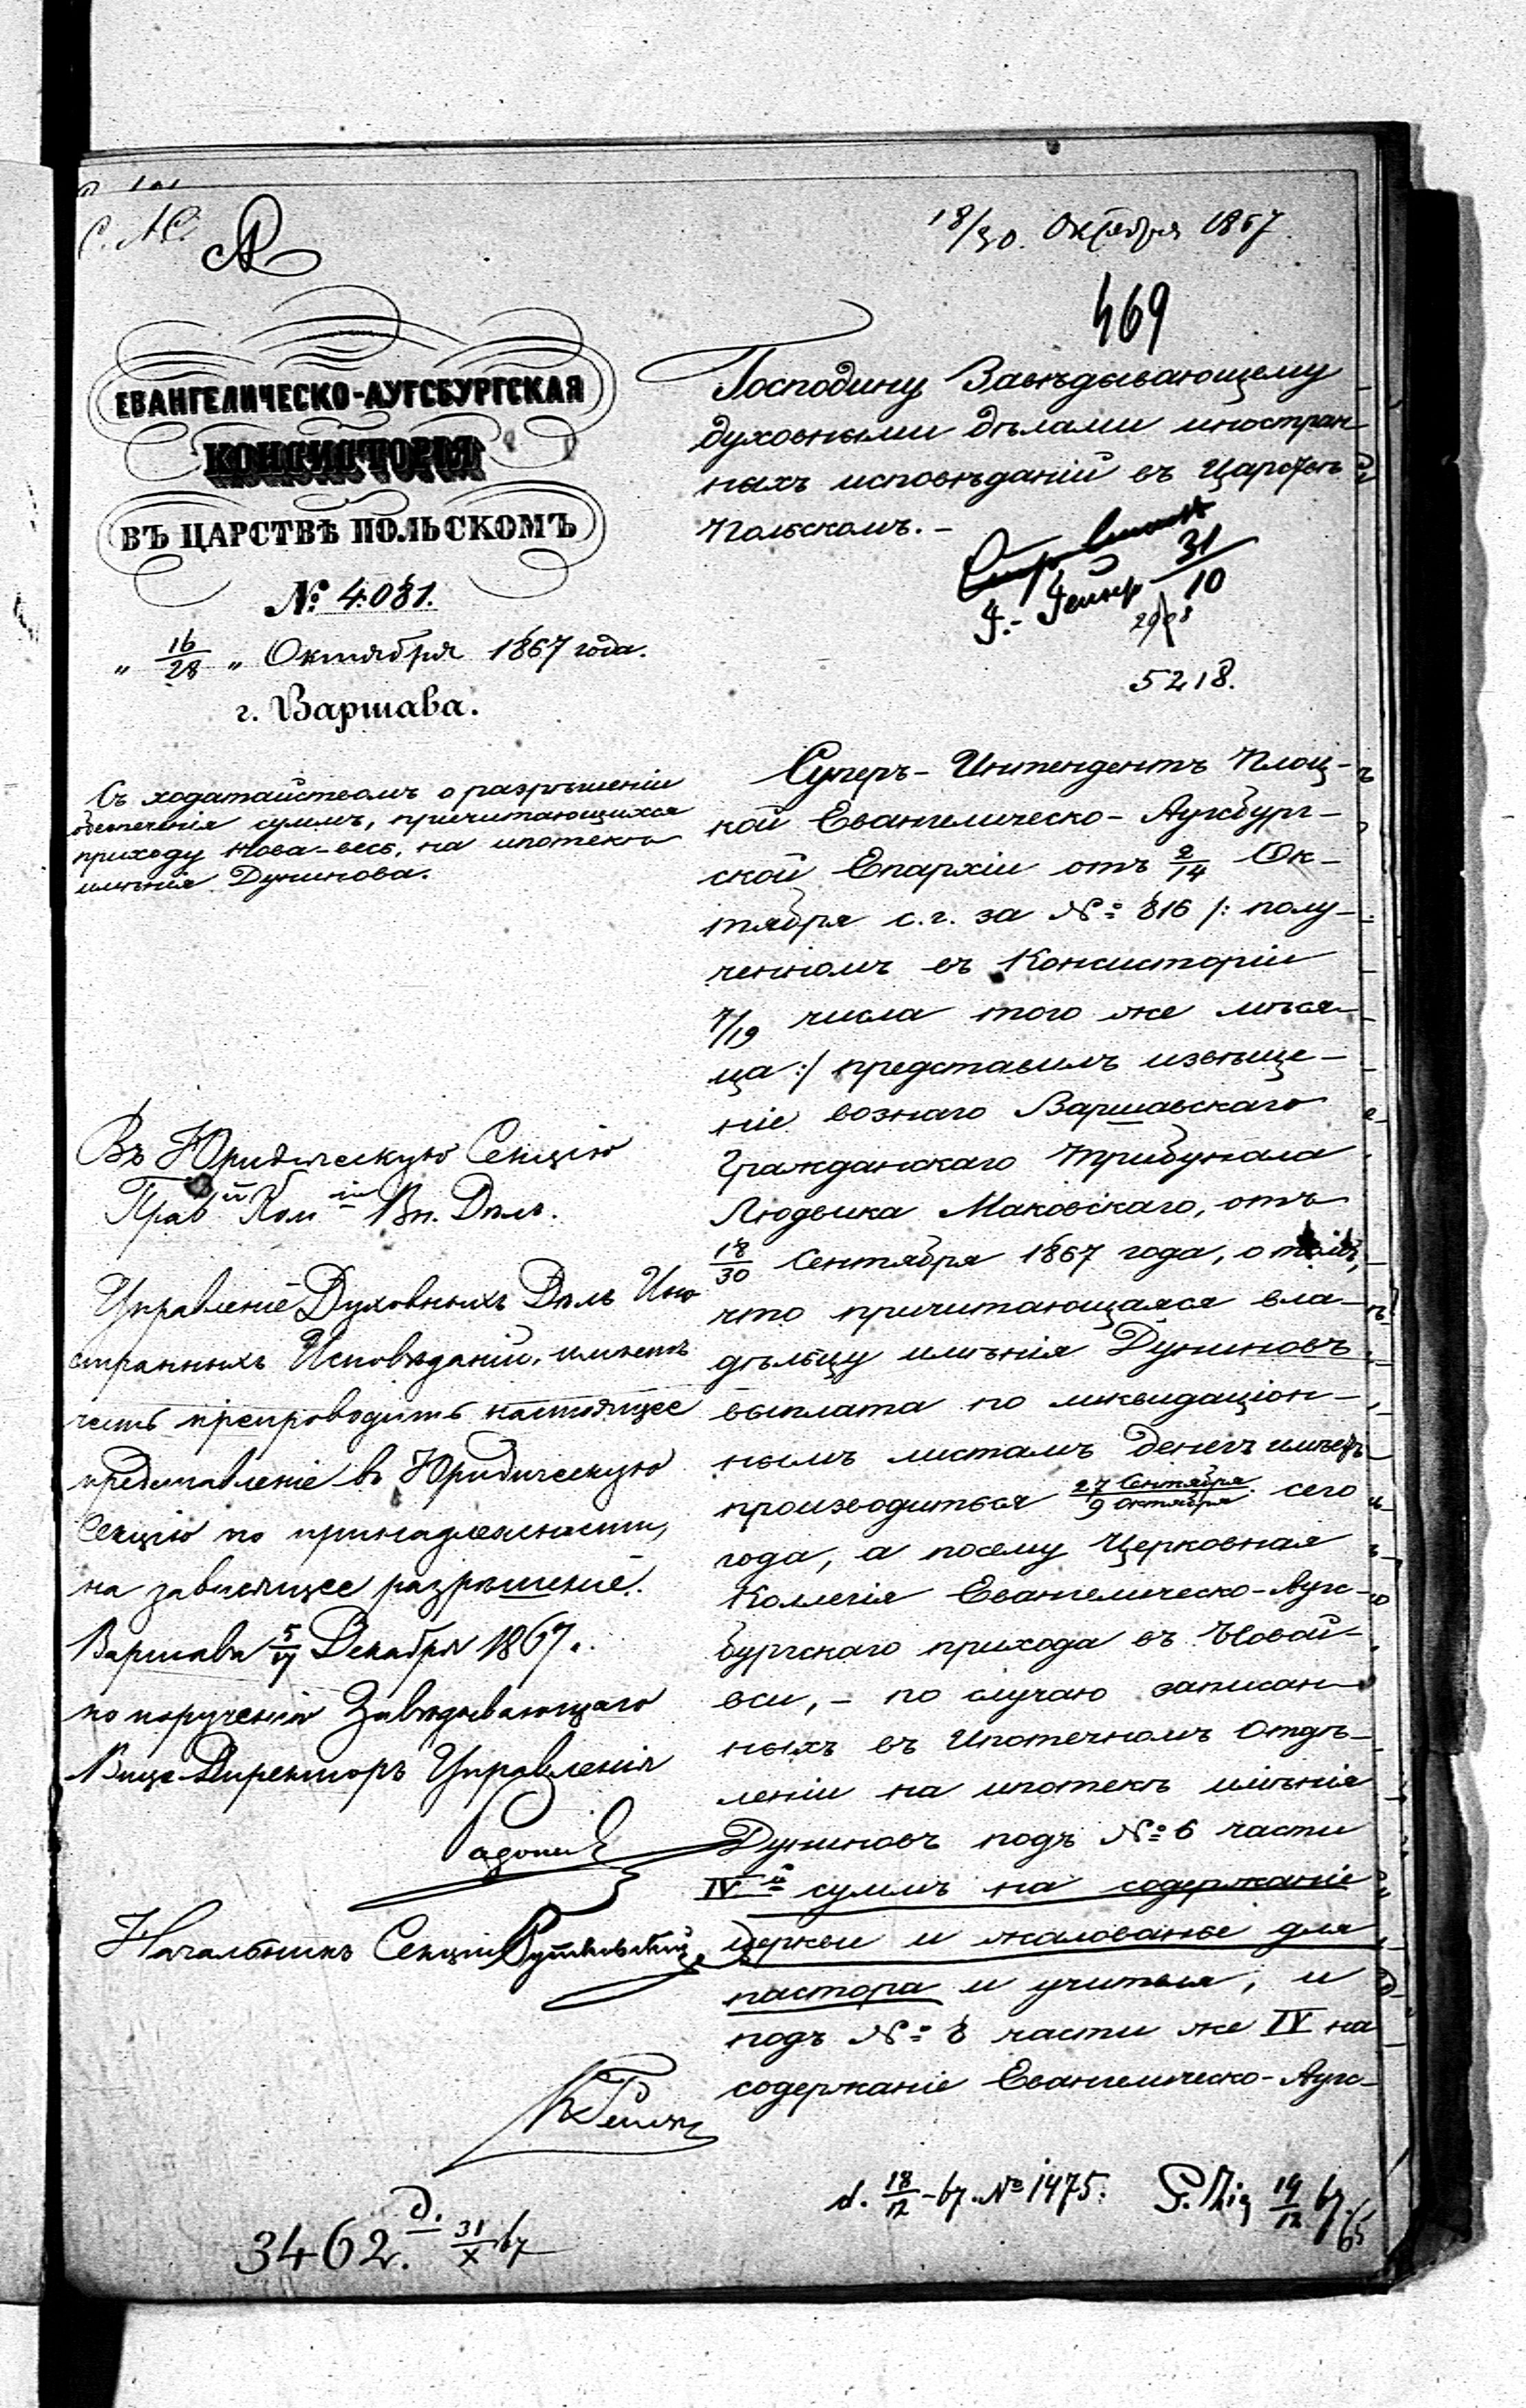 С. А. С.
18/30. Октября 1867.
469
ЕВАНГЕЛИЧЕСКО-АУГСБУРГСКАЯ
КОНСИСТОРІЯ
ВЪ ЦАРСТВѢ ПОЛЬСКОМЪ
№ 4.081.
„ 16/28 „ Октября 1867 года.
г. Варшава.
Съ ходатайствомъ о разрѣшеніи
обезпеченія суммъ, причитающихся
приходу Нова-весь, на ипотекѣ
имѣнія Дунинова.
Въ Юридическую Секцію
Прав ой Ком іи Вн. Дѣлъ.
Управленіе Духовныхъ Дѣлъ Ино
странныхъ Исповѣданій, имѣетъ
честь препроводить настоящее
представленіе въ Юридическую
Секцію по принадлежности,
на зависящее разрѣшеніе.
Варшава 5/17 Декабря 1867.
по порученію Завѣдывающаго
Вице-Директоръ Управленія
Начальникъ Секціи
3462. д. 31/X 67
Господину Завѣдывающему
духовными дѣлами иностран
ныхъ исповѣданій въ Царствѣ
Польскомъ. -
31/10
5218.
Суперъ-Интендентъ Плоц-
кой Евангелическо-Аугсбург-
ской Епархіи отъ 2/14 Ок-
тября с.г. за № 816 /: полу-
ченномъ въ Консисторіи
7/19 числа того же мѣся-
ца :/ представилъ извѣще-
ніе вознаго Варшавскаго
Гражданскаго Трибунала
Людвика Маковскаго, отъ
18/30 Сентября 1867 года, о томъ,
что причитающаяся вла-
дѣльцу имѣнія Дуниновъ
выплата по ликвидаціон-
нымъ листамъ денегъ имѣетъ
производиться 27 Сентября/9 Октября сего
года, а посему Церковная
Коллегія Евангелическо-Аугс-
бургскаго прихода въ Новой-
вси, - по случаю записан
ныхъ въ Ипотечномъ Отдѣ-
леніи на ипотекѣ имѣнія
Дуниновъ подъ № 6 части
IV й суммъ на содержаніе
церкви и жалованье для
пастора и учителя, и
подъ № 8 части же IV на
содержаніе Евангелическо-Аугс-
d. 18/12 - 67. № 1475.
19/12 67